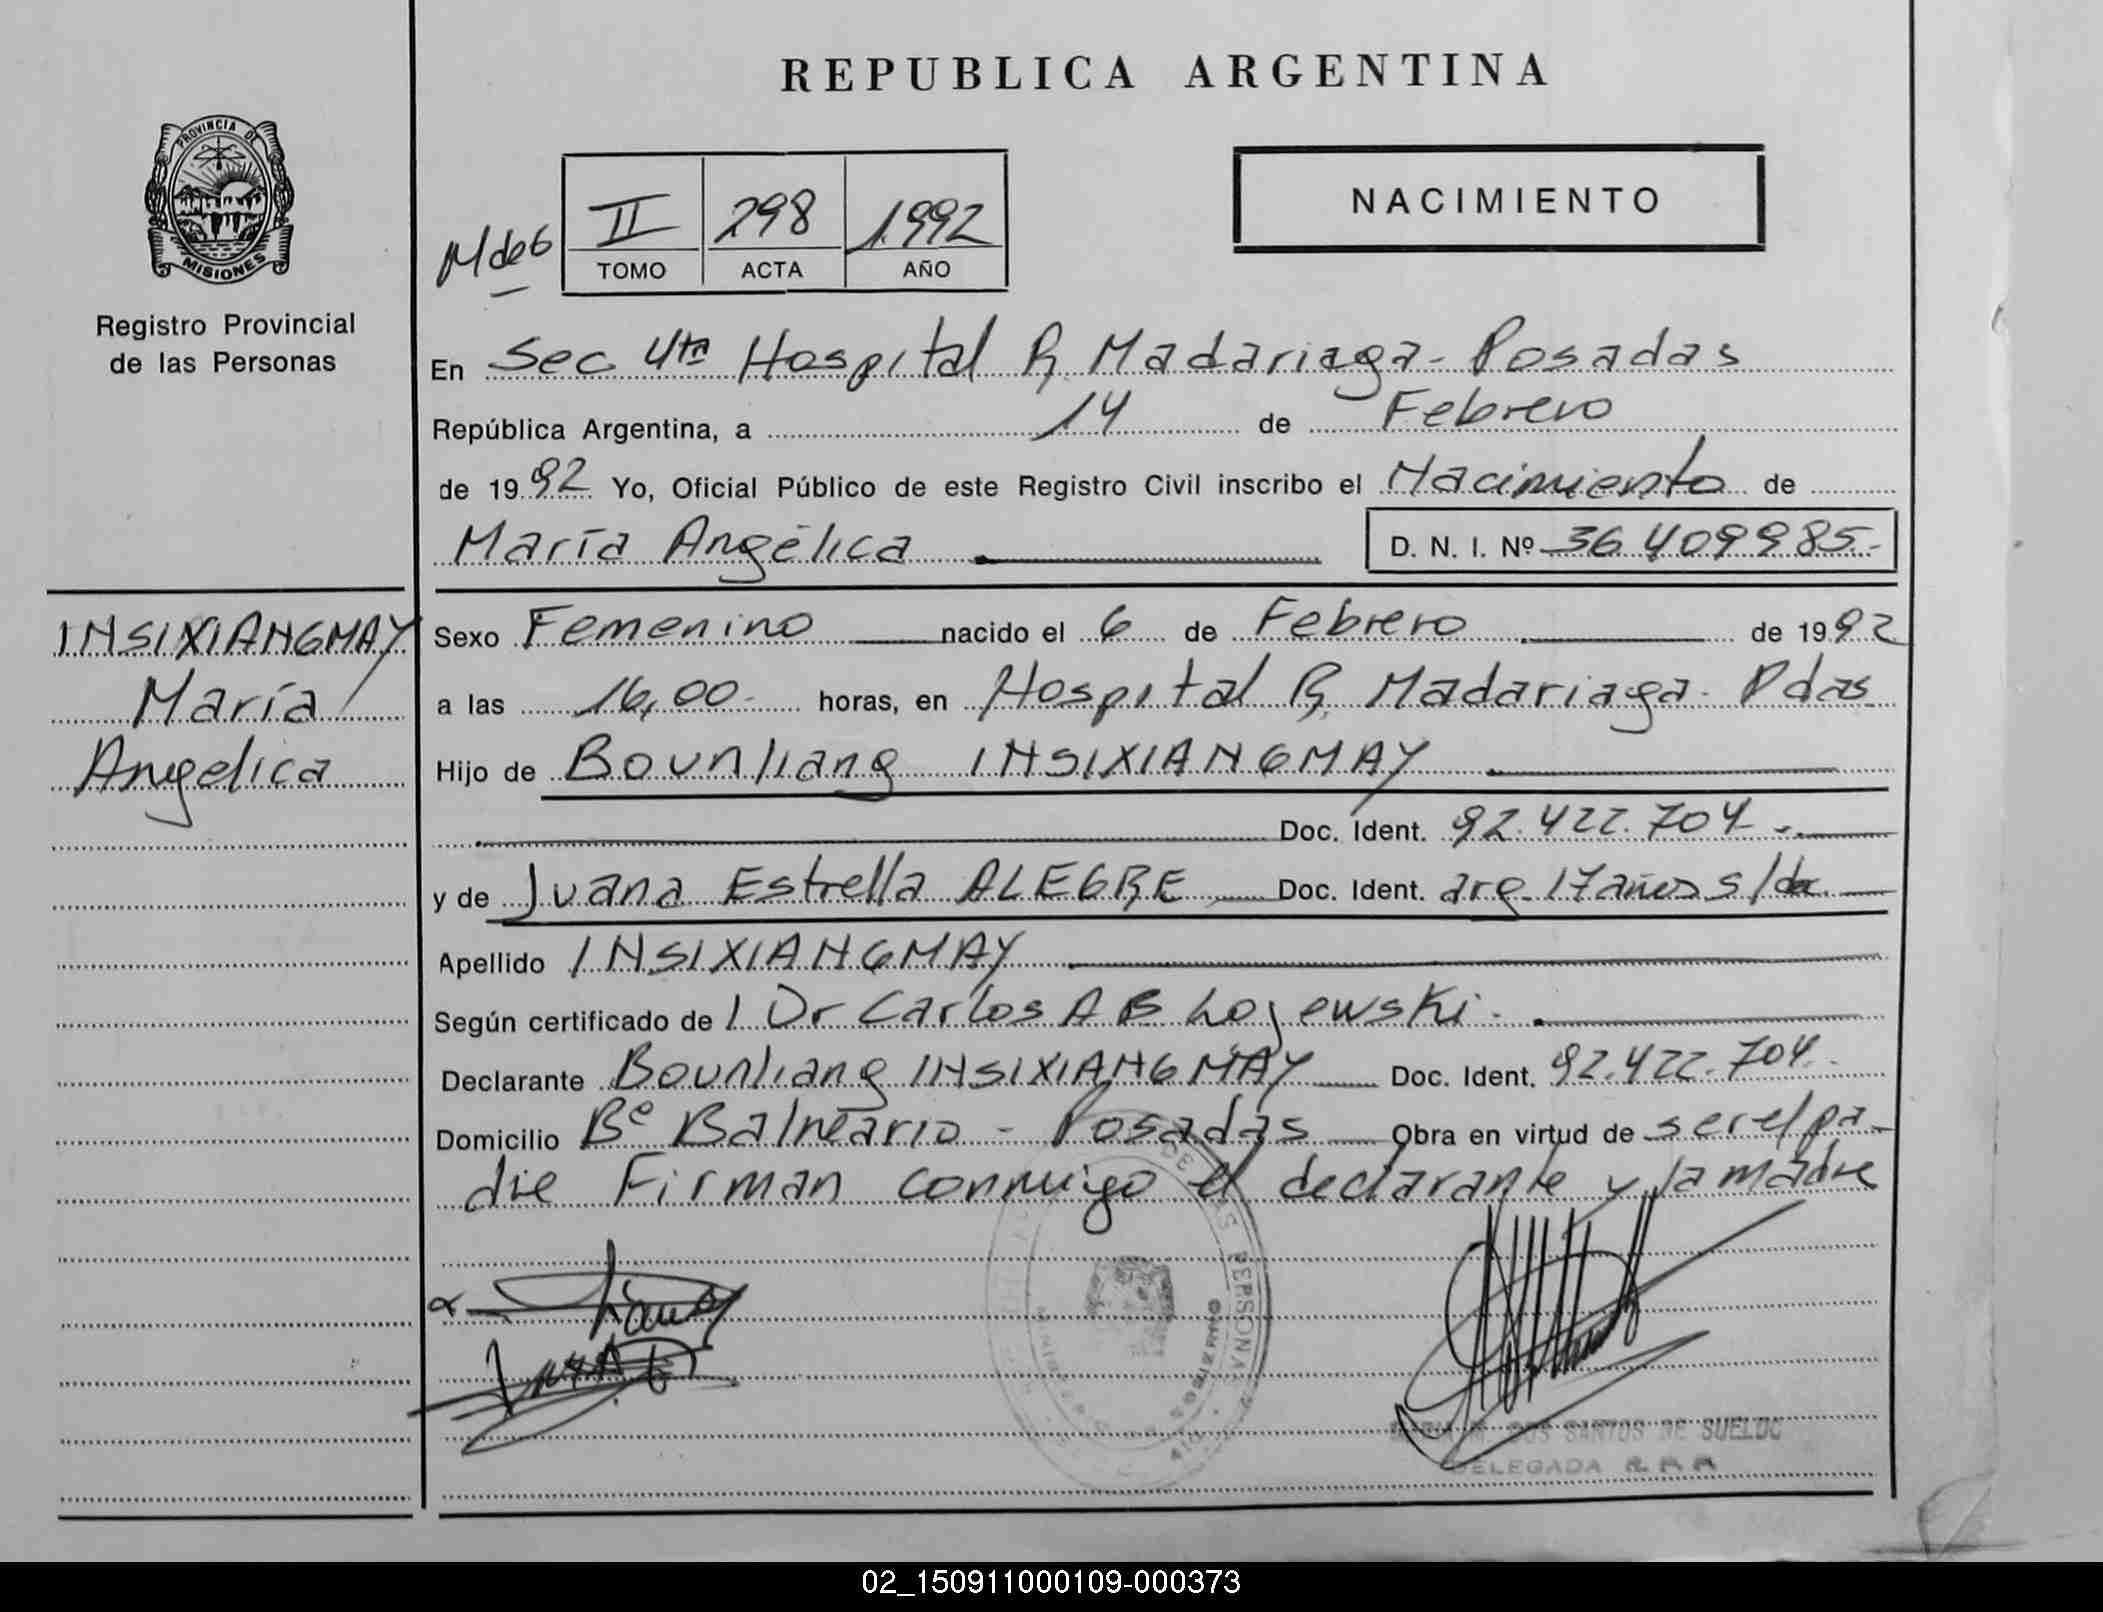 REPUBLICA ARGENTINA
PROVINCIA DE
MISIONES
Registro Provincial
de las Personas
NACIMIENTO
II 298 1992
TOMO ACTA AÑO
En Sec 4ta Hospital R. Madariaga - Posadas
República Argentina, a 14 de Febrero
de 1992 Yo, Oficial Público de este Registro Civil inscribo el Nacimiento de
María Angélica D. N. I. Nº 36.409985.-
INSIXIANGMAY
María
Angelica
Sexo Femenino nacido el 6 de Febrero de 1992
a las 16,00- horas, en Hospital R. Madariaga - Pdas
Hijo de Bounliang INSIXIANGMAY
Doc. Ident. 92.422.704.-
y de Juana Estrella ALEGRE Doc. Ident. arg. 17 años s/d
Apellido INSIXIANGMAY
Según certificado de l Dr Carlos A B Lojewski.
Declarante Bounliang INSIXIANGMAY Doc. Ident. 92.422.704.
Domicilio Bº Balneario - Posadas Obra en virtud de ser el pa-
dre Firman conmigo el declarante y la madre
DE LAS PERSONAS
MINISTERIO DE GOBIERNO
DOS SANTOS DE SUELDC
DELEGADA
02_150911000109-000373